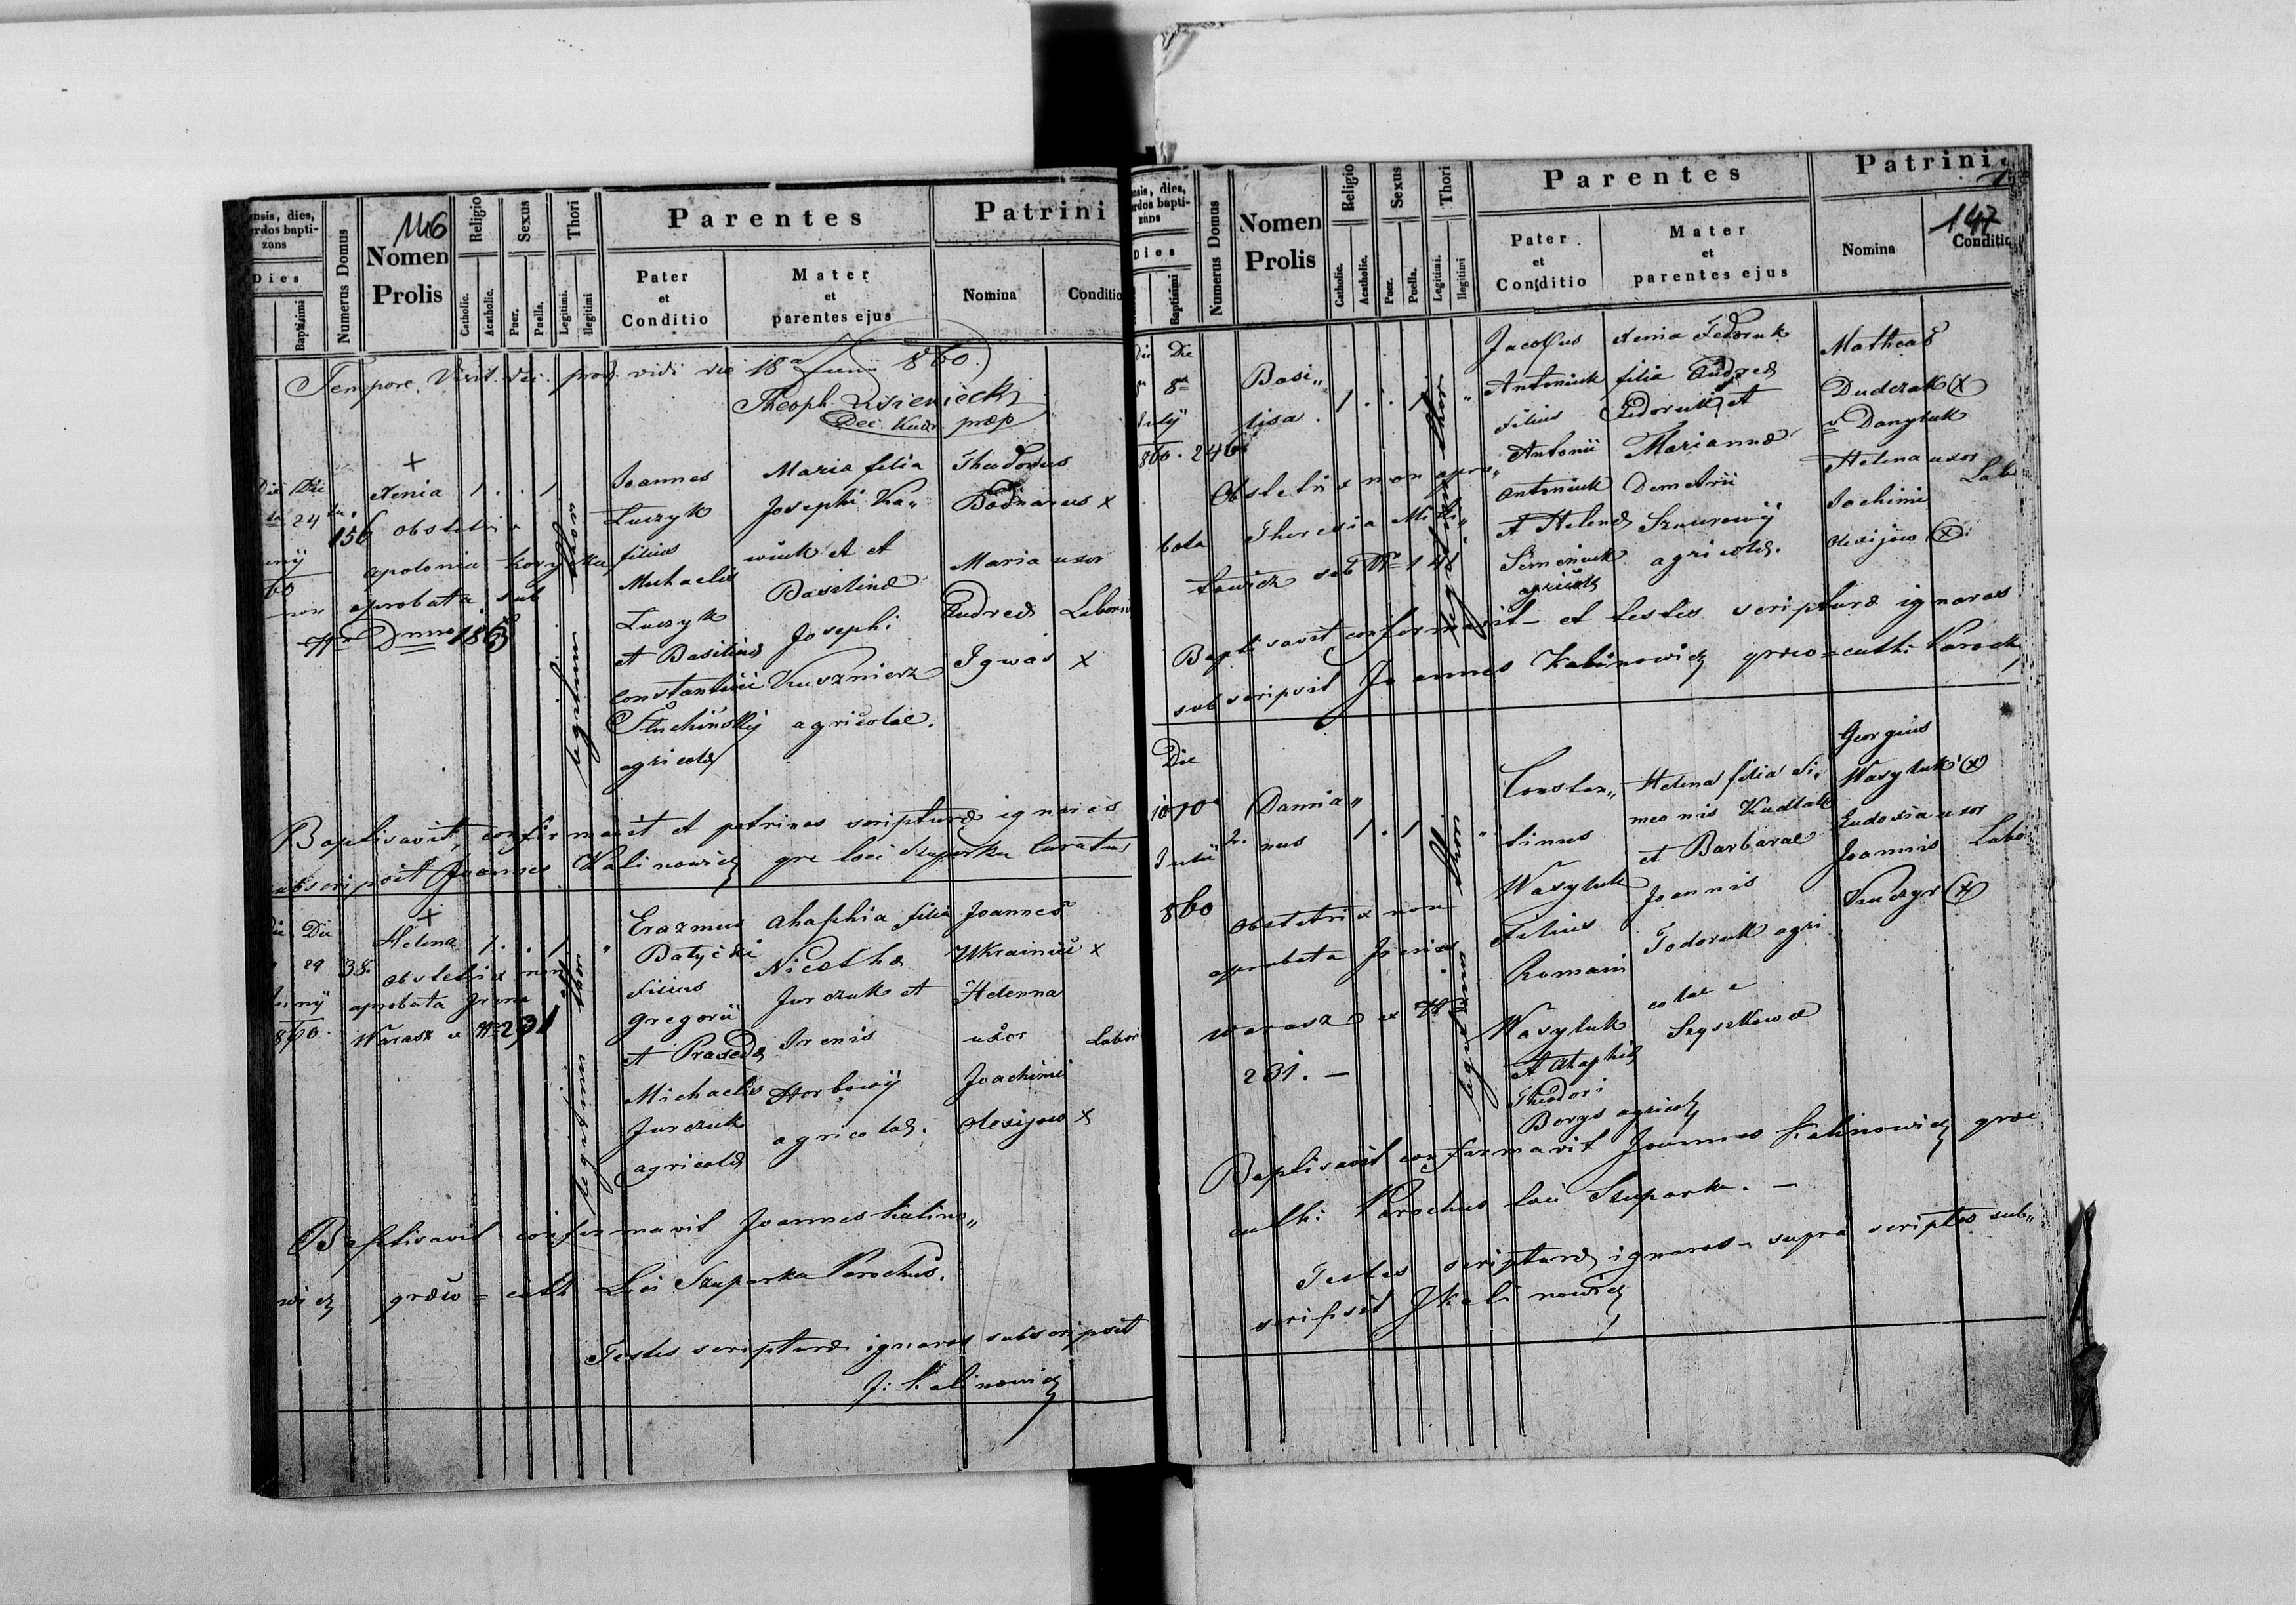 146
Nomen Prolis
Numerus Domus
Religio
Sexus
Thori
Parentes
Patrini
Dies
Baptisimi
Catholic.
Acatholic.
Puer.
Puella.
Legitimi.
Illegitimi
Pater et Conditio
Mater et parentes ejus
Nomina
Conditio
Tempore Visit. dec. vidi die 18a Junii 860
Theoph. Lisieniecki
Dec. Kudr. præp
Die
24
156
Xenia 1 . . 1
Obstetrix
Apolonia
aprobata sub
legitimi thori
Joannes
Luczyk
filius
Michaelis
Luczyk
et Basiliæ
Constantini
agricolæ
Maria filia
Josephi Ka„
wiuk et
Basilinæ
Josephi
Kusznierz
agricolae.
Theodorus
Bodnarus x
Maria uxor
Andreæ
Igwas x
Baptisavit, confirmavit et patrinos scripturæ ignaros
subscripsit Joannes Kalinowicz loci Szuparka Curatus
Die
29
Juny
860.
38.
Helena 1 . . 1
Obstetrix non
aprobata Irena
Warasz e No 231
legitimi thori
Erazmus
Batycki
Filius
Gregorii
et Praxedæ
Michaelis
Jurczuk
agricolæ
Ahaphia filia
Nicethæ
Jurczuk et
Irenis
Horbowÿ
agricolæ.
Joannes
Ukrainiec x
Helenna
uxor
Joachimi
Olexijow x
Labori
Baptisavit confirmavit Joannes Kalino„
wicz græco = cath Loci Szuparka Parochus.
Testes scripturæ ignaros subscripsit
J: Kalinowicz
147
Nomen Prolis
Numerus Domus
Religio
Sexus
Thori
Parentes
Patrini
Dies
Baptisimi
Catholic.
Acatholic.
Puer.
Puella.
Legitimi.
Illegitimi
Pater et Conditio
Mater et parentes ejus
Nomina
Conditio
Die
8a
July
860.
246
Basi„
lisa. 1 . . 1
Obstetrix non apro„
bata Theresia Mi
towicz sub No 141
legitimi thori
Jacobus
Antoniuk
Filius
Antonii
Antoniuk
et Helenæ
Simeniuk
agricolæ
Xenia Fedoruk
filia Andreæ
Fedoruk et
Mariannæ
Demetrii
Sznurowÿ
agricolæ.
Matheas
Dudczak (x)
v Danyluk
Helena uxor
Joachimi
Olexijow (x)
Labo
Baptisavit confirmavit et testes scripturæ ignaros
subscripsit Joannes Kalinowicz græco=cath: Paroch
Die
10a
Julii
860
2.
Damia„
nus 1 . 1
Obstetrix non
aprobata Irenia
Warasz e No
231. —
legitimi thori
Constan„
tinus
Wasyluk
Filius
Romani
Wasyluk
et Ahaphiæ
Theodori
Borys agricolæ
Helena filia Si„
meonis Kudlak
et Barbarae
Joannis
Todoruk agri
colae e
Szyszkowce
Georgius
Wasyluk (x)
Eudoxia uxor
Joannis
(x)
Labo
Baptisavit confirmavit Joannes Kalinowicz græc
cath: Parochus loci Szuparka. —
Testes scripturæ ignaros supra scriptos sub„
scripsit J Kalinowicz